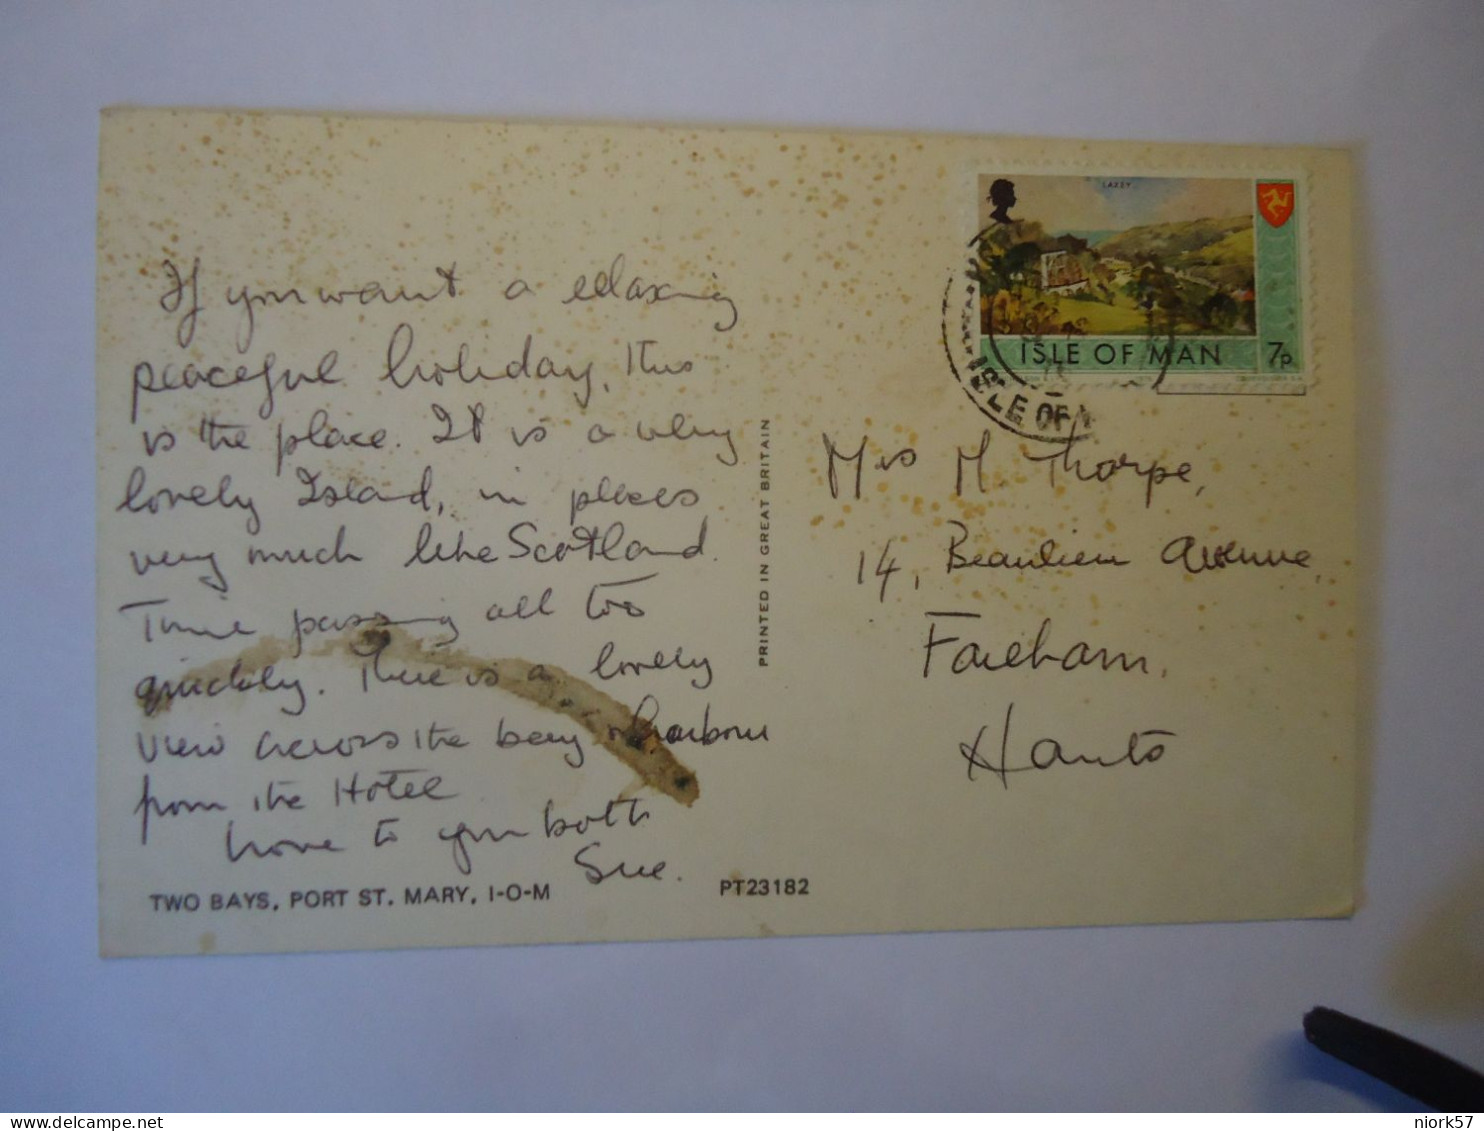 If you want a relaxing
peaceful holiday, this
is the place. It is a very
lovely Island, in places
very much like Scotland.
Time passing all too
quickly. There is a lovely
view across the bay & harbour
from the Hotel.
Love to you both
Sue.
TWO BAYS, PORT ST. MARY, I-O-M
PT23182
PRINTED IN GREAT BRITAIN
LAXEY
ISLE OF MAN 7p
ISLE OF
Mrs M. Thorpe,
14, Beaulieu Avenue,
Fareham,
Hants
niork57